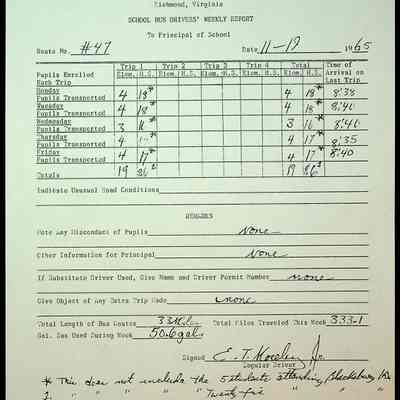 Richmond, Virginia
SCHOOL BUS DRIVERS' WEEKLY REPORT
To Principal of School
Route No. #47 Date 11-19 1965
Trip 1 Trip 2 Trip 3 Trip 4 Total Time of Arrival on Last Trip
Pupils Enrolled Each Trip Elem. H.S. Elem. H.S. Elem. H.S. Elem. H.S. Elem. H.S.
Monday Pupils Transported 4 18* 4 18* 8:38
Tuesday Pupils Transported 4 18* 4 18* 8:40
Wednesday Pupils Transported 3 16* 3 16* 8:40
Thursday Pupils Transported 4 4 17* 8:35
Friday Pupils Transported 4 17* 4 17* 8:40
Totals 19 86 19 86
Indicate Unusual Road Conditions
REMARKS
Note Any Misconduct of Pupils None
Other Information for Principal None
If Substitute Driver Used, Give Name and Driver Permit Number none
Give Object of Any Extra Trip Made none
Total Length of Bus Routes 33 Total Miles Traveled This Week 333.1
Gal. Gas Used During Week 50.6 gal.
Signed E. T. Jr.
Regular Driver
* This does not include the 5 students attending Blacksburg
" " " " Twenty five " " "